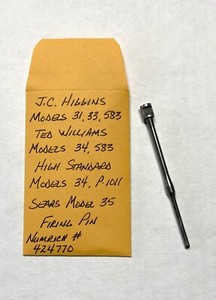 J.C. HIGGINS
MODELS 31, 33, 583
TED WILLIAMS
MODELS 34, 583
HIGH STANDARD
MODELS 34, P-1011
SEARS MODEL 35
FIRING PIN
NUMRICH #
424770